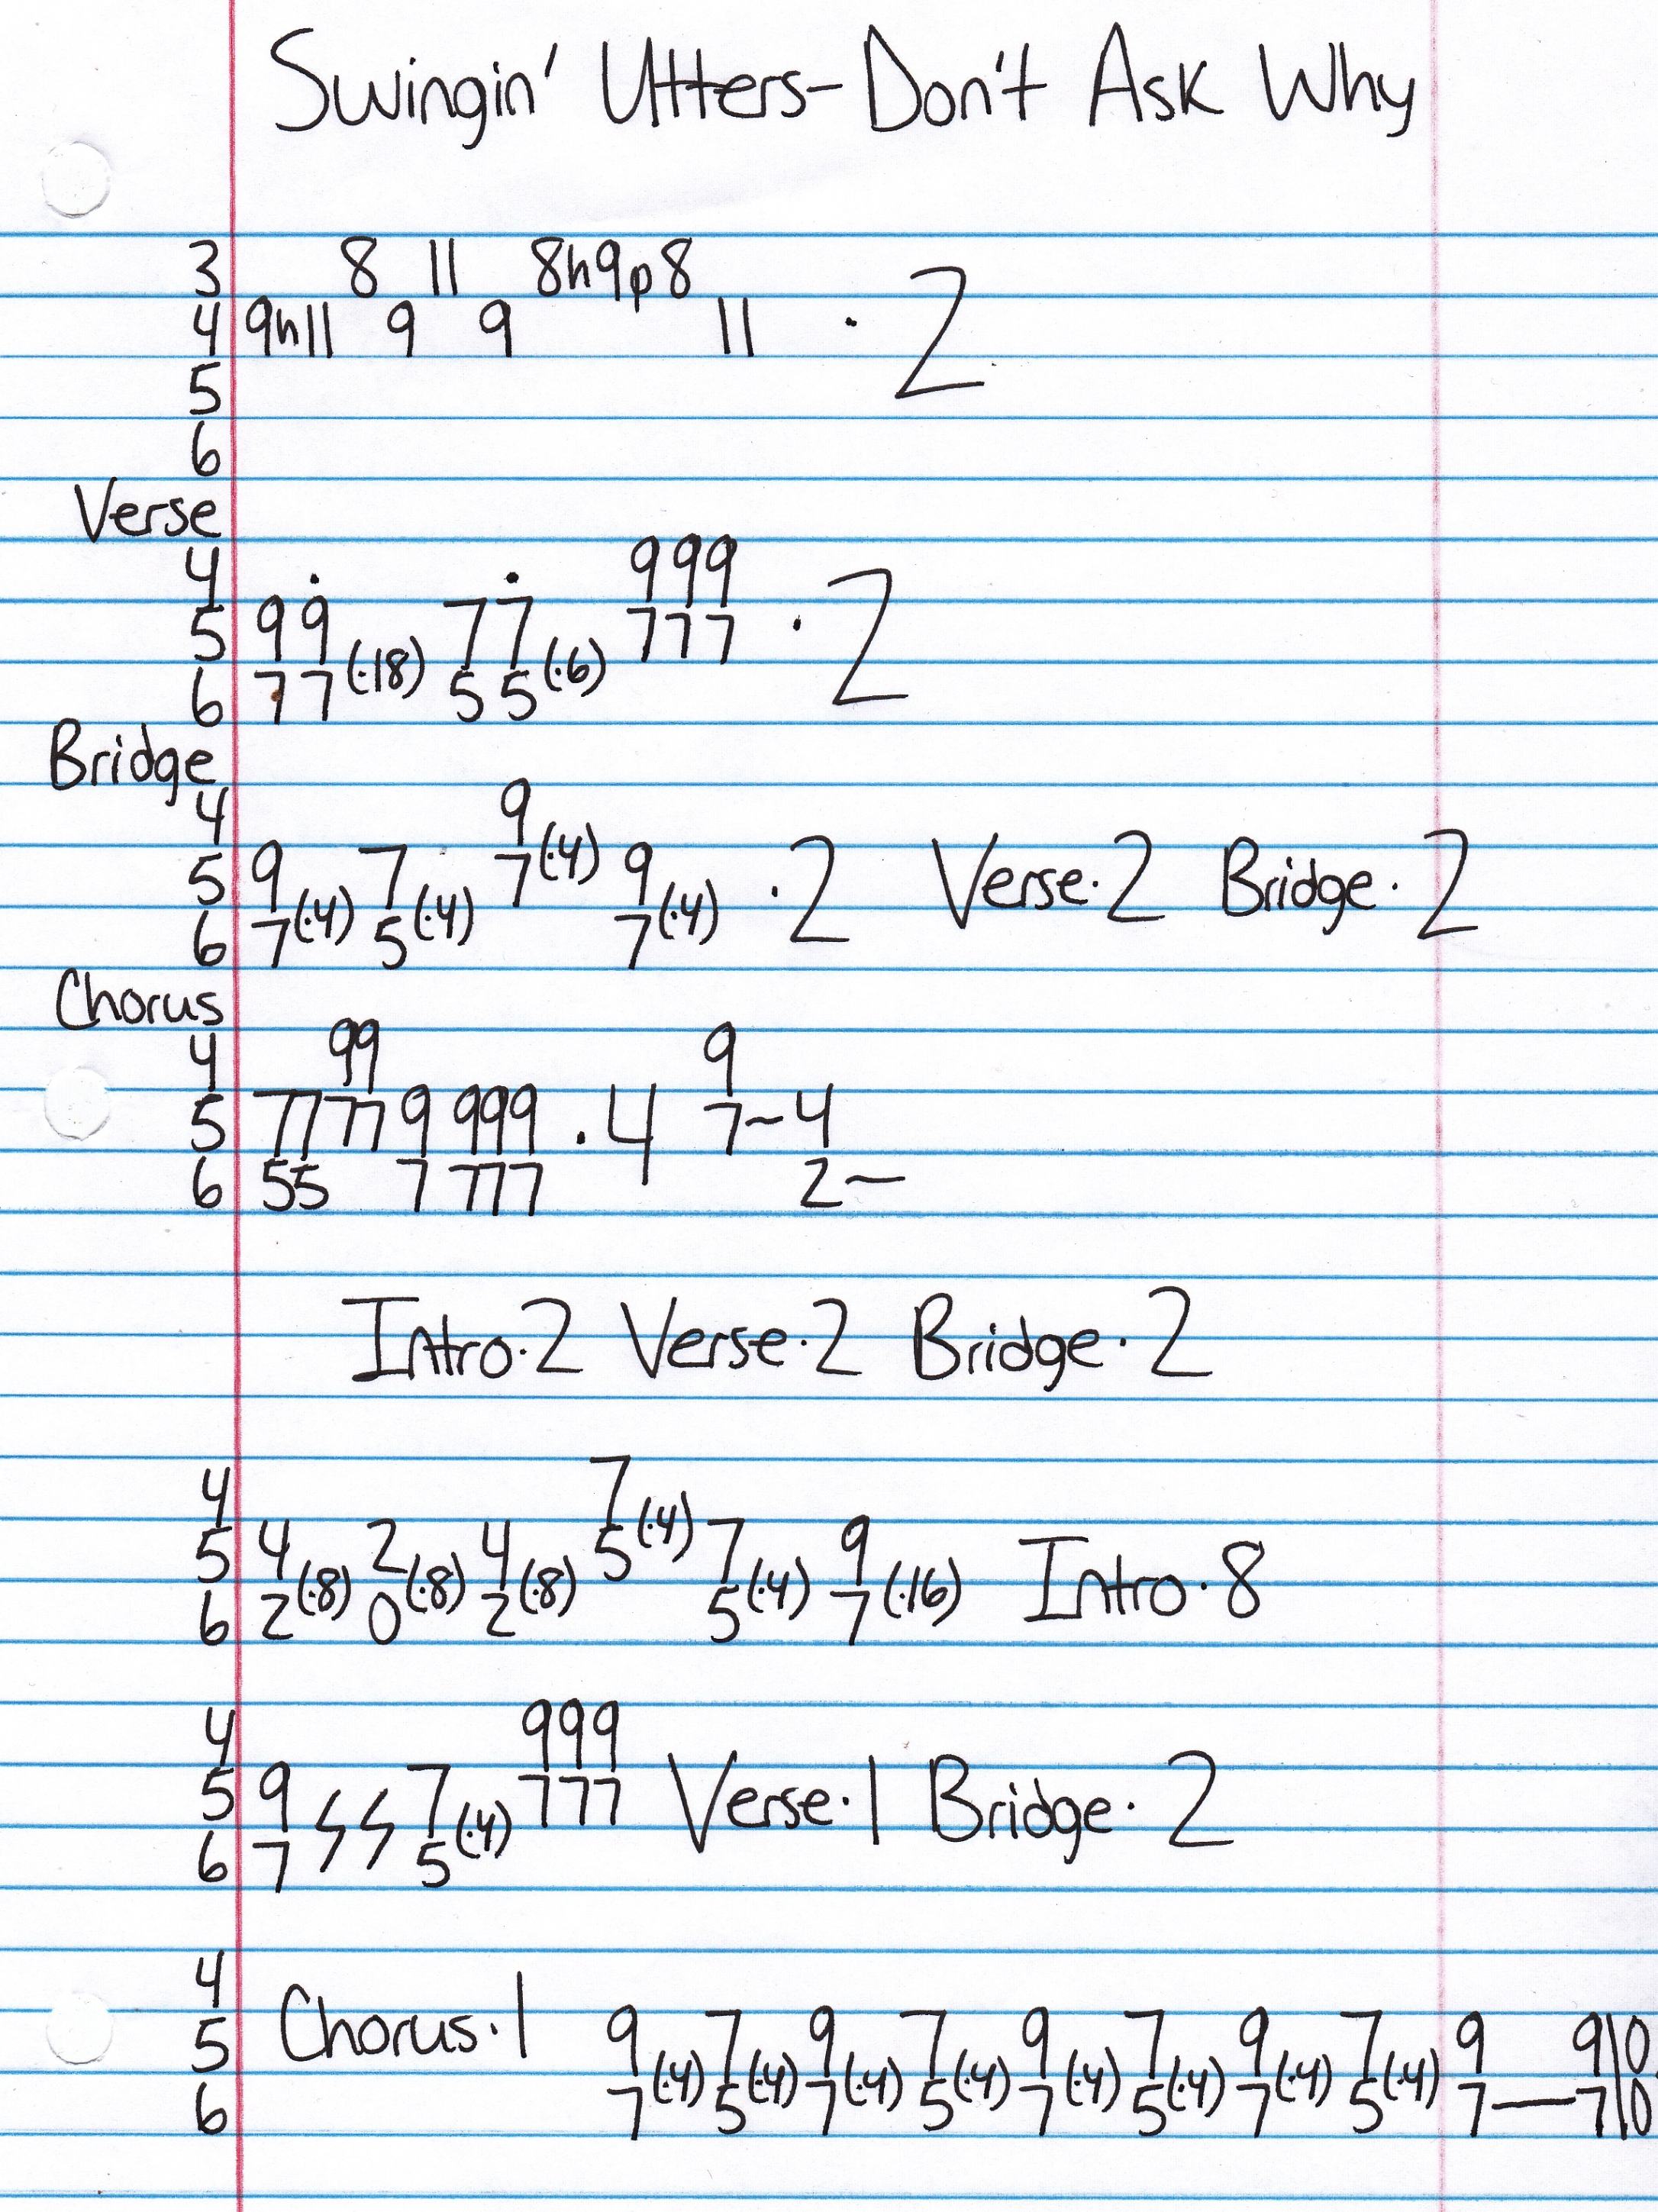 Swingin' Utters- Don't Ask Why
3 8 11 8h9p8
4 9h11 9 9 11 · 2
5
6
Verse
4 999
5 99 77 777 · 2
6 77 (·18) 55 (·6)
Bridge
4 9
5 9 7 7 (·4) 9 · 2 Verse · 2 Bridge · 2
6 7 (·4) 5 (·4) 7 (·4)
Chorus
4 99 9
5 77 77 9 999 · 4 7~4
6 55 7 777 2~
Intro · 2 Verse · 2 Bridge · 2
4 7
5 4 2 4 5 (·4) 7 9 Intro · 8
6 2 (·8) 0 (·8) 2 (·8) 5 (·4) 7 (·16)
4 999
5 9 7 777 Verse · 1 Bridge · 2
6 7 5 (·4)
4
5 Chorus · 1 9 7 9 7 9 7 9 7 9 9\0
6 7 (·4) 5 (·4) 7 (·4) 5 (·4) 7 (·4) 5 (·4) 7 (·4) 5 (·4) 7—7\0